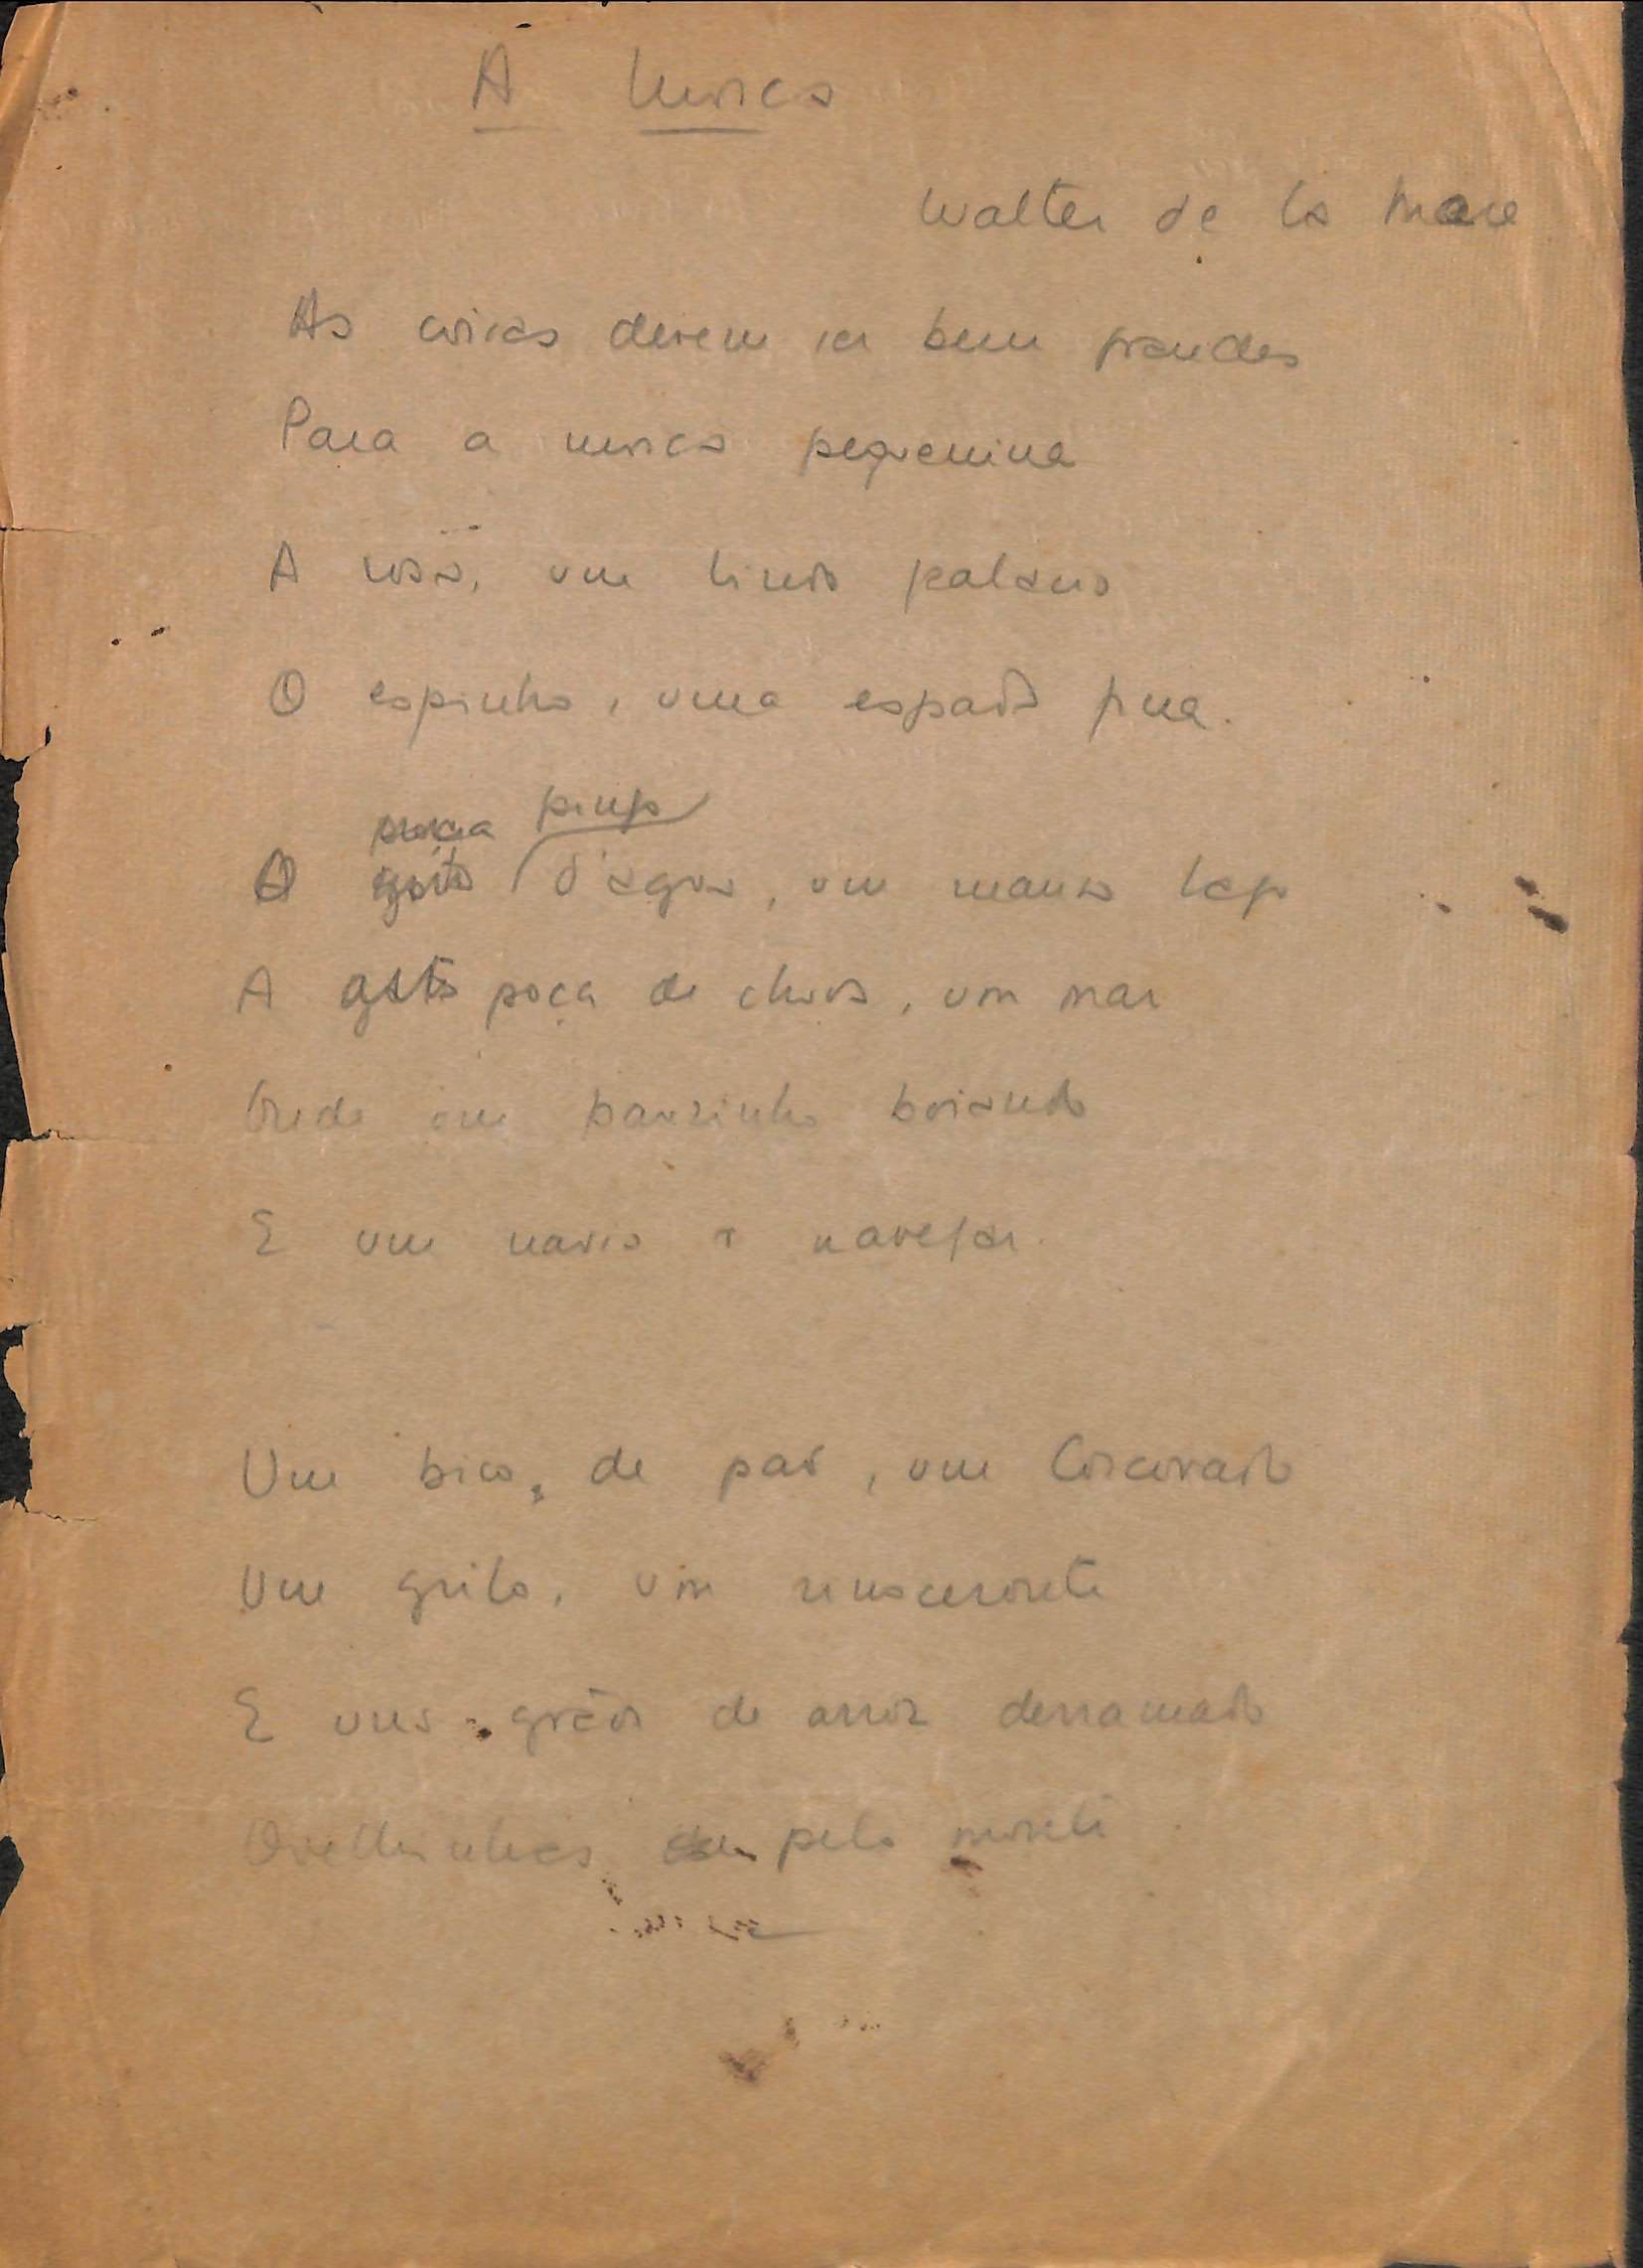 A Mosca
Walter de la Mare
As coisas devem ser bem grandes
Para a mosca pequenina
A rosa, um lindo palácio
O espinho, uma espada fina.
poça pingo
O gota d'agua, um manso lago
A gota poça de chuva, um mar
Onde um pauzinho boiando
É um navio a navegar.
Um bico de pão, um Corcovado
Um grilo, um rinoceronte
E uns grãos de arroz derramado
Ovelhinhas pelo monte